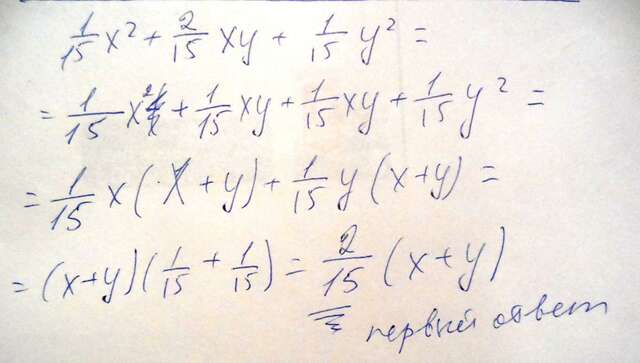 1/15 x² + 2/15 xy + 1/15 y² =
= 1/15 x² + 1/15 xy + 1/15 xy + 1/15 y² =
= 1/15 x (x + y) + 1/15 y (x+y) =
= (x+y) (1/15 + 1/15) = 2/15 (x+y)
первый ответ